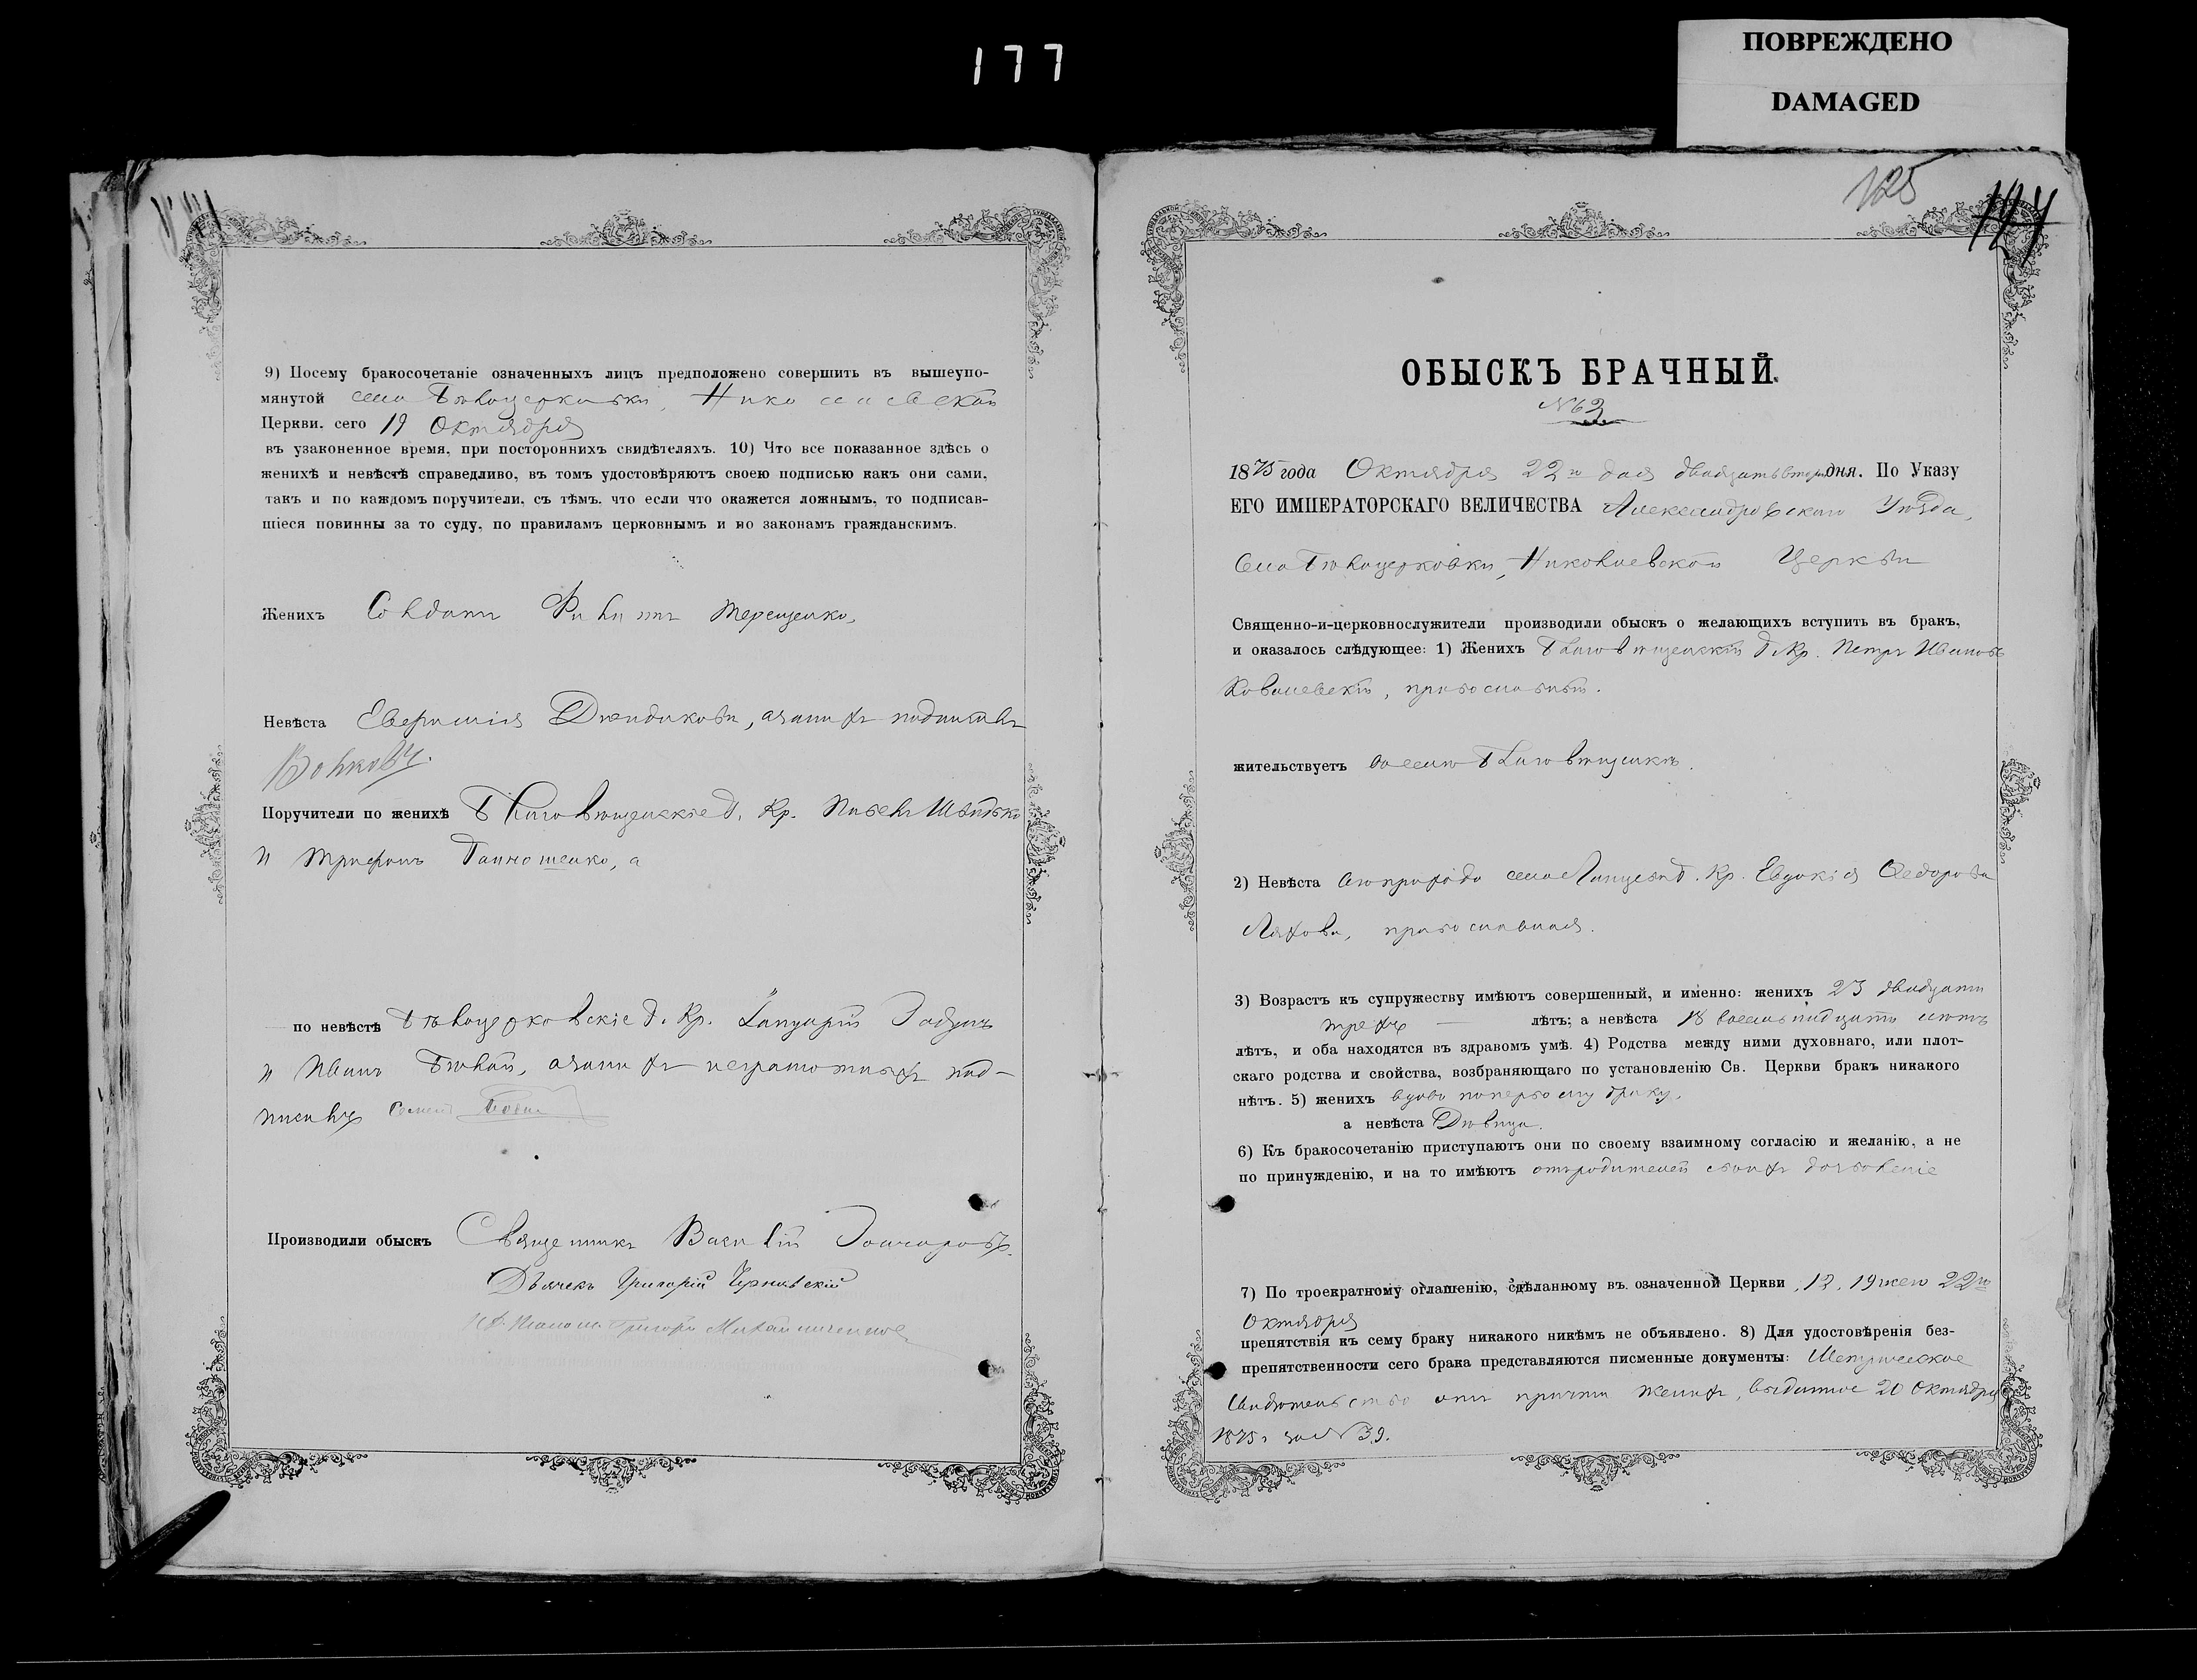 177
ПОВРЕЖДЕНО
DAMAGED
9) Посему бракосочетаніе означенныхъ лицъ предположено совершить въ вышеупо-
мянутой села Бѣлоцерковки, Николаевской
Церкви, сего 19 Октября
въ узаконенное время, при постороннихъ свидѣтеляхъ. 10) Что все показанное здѣсь о
женихѣ и невѣстѣ справедливо, въ томъ удостовѣряютъ своею подписью какъ они сами,
такъ и по каждомъ поручители, съ тѣмъ, что если что окажется ложнымъ, то подписав-
шіеся повинны за то суду, по правиламъ церковнымъ и по законамъ гражданскимъ.
Женихъ Солдатъ Филиппъ Терещенко,
Невѣста
Поручители по женихѣ Благовѣщенскіе Г. Кр. Павелъ
и Трифонъ а
по невѣстѣ Бѣлоцерковскіе Г. Кр.
и Иванъ Бѣлый, а за нихъ неграмотныхъ под-
писалъ
Производили обыскъ Священникъ Василій Гончаровъ.
Дьячекъ Григорій Чернявскій
125
124
ОБЫСКЪ БРАЧНЫЙ.
№ 63
1875 года Октября 22го дня двадцать втораго дня. По Указу
ЕГО ИМПЕРАТОРСКАГО ВЕЛИЧЕСТВА Александровскаго Уѣзда,
Села Бѣлоцерковки, Николаевской Церкви
Священно-и-церковнослужители производили обыскъ о желающихъ вступить въ бракъ,
и оказалось слѣдующее: 1) Женихъ Благовѣщенскій Г. Кр. Петръ Ивановъ
Ковалевскій, православный.
жительствуетъ въ селѣ Благовѣщенкѣ.
2) Невѣста сего прихода села Г. Кр. Евдокія Ѳедорова
Ляхова, православная.
3) Возрастъ къ супружеству имѣютъ совершенный, и именно: женихъ 23 двадцати
трехъ — лѣтъ; а невѣста 18 восемнадцати лѣтъ
лѣтъ, и оба находятся въ здравомъ умѣ. 4) Родства между ними духовнаго, или плот-
скаго родства и свойства, возбраняющаго по установленію Св. Церкви бракъ никакого
нѣтъ. 5) женихъ вдовъ по первому браку,
а невѣста Дѣвица.
6) Къ бракосочетанію приступаютъ они по своему взаимному согласію и желанію, а не
по принужденію, и на то имѣютъ отъ родителей своихъ дозволеніе
7) По троекратному оглашенію, сдѣланному въ означенной Церкви, 12, 19 и сего 22го
Октября
препятствія къ сему браку никакого никѣмъ не объявлено. 8) Для удостовѣренія без-
препятственности сего брака представляются писменные документы: Метрическое
Свидѣтельство отъ причта жениха, выданное 20 Октября
1875 г. за № 39.